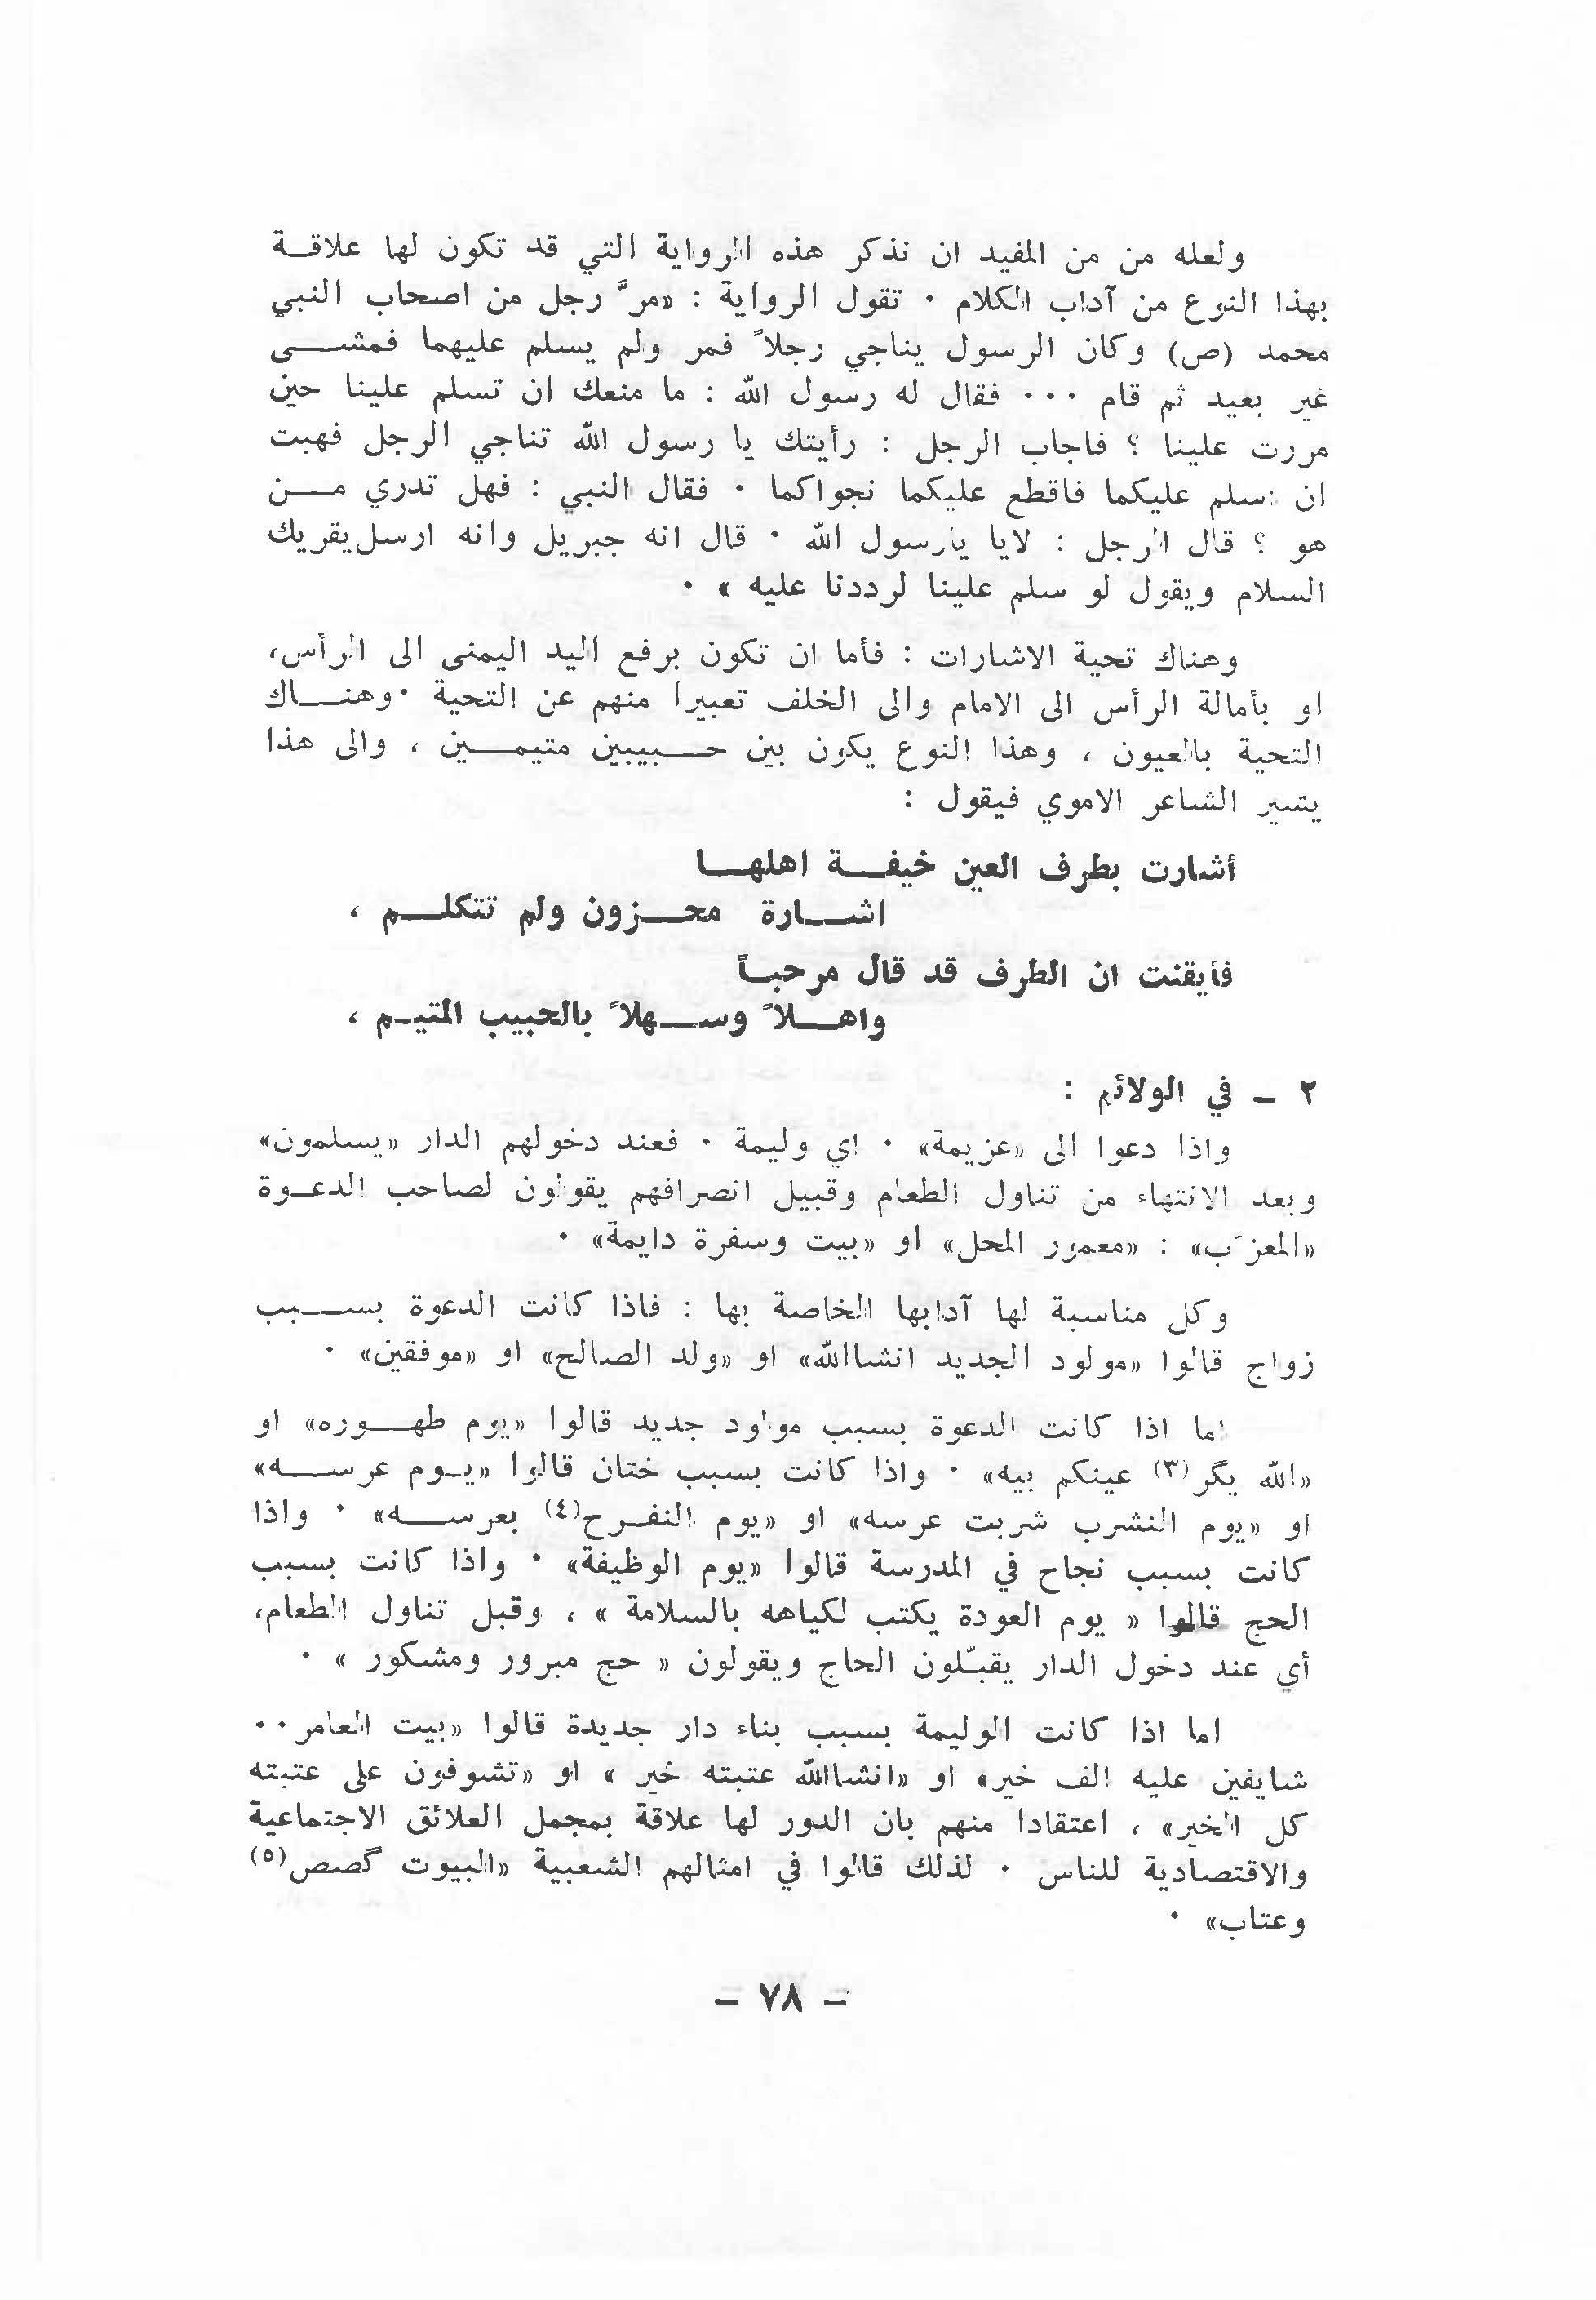 ولعله من من المفيد ان نذكر هذه الرواية التي قد تكون لها علاقة
بهذا النوع من آداب الكلام . تقول الرواية : «مرَّ رجل من اصحاب النبي
محمد (ص) وكان الرسول يناجي رجلاً فمر ولم يسلم عليهما فمشى
غير بعيد ثم قام ... فقال له رسول الله : ما منعك ان تسلم علينا حين
مررت علينا ؟ فاجاب الرجل : رأيتك يا رسول الله تناجي الرجل فهبت
ان اسلم عليكما فاقطع عليكما نجواكما . فقال النبي : فهل تدري من
هو ؟ قال الرجل : لايا يارسول الله . قال انه جبريل وانه ارسل يقريك
السلام ويقول لو سلم علينا لرددنا عليه » .
وهناك تحية الاشارات : فأما ان تكون برفع اليد اليمنى الى الرأس،
او بأمالة الرأس الى الامام والى الخلف تعبيرا منهم عن التحية . وهناك
التحية بالعيون ، وهذا النوع يكون بين حبيبين متيمين ، والى هذا
يشير الشاعر الاموي فيقول :
أشارت بطرف العين خيفة اهلها
اشارة محزون ولم تتكلم ،
فأيقنت ان الطرف قد قال مرحباً
واهلاً وسهلاً بالحبيب المتيم ،
٢ – في الولائم :
واذا دعوا الى «عزيمة» . اي وليمة . فعند دخولهم الدار «يسلمون»
وبعد الانتهاء من تناول الطعام وقبيل انصرافهم يقولون لصاحب الدعوة
«المعزَب» : «معمور المحل» او «بيت وسفرة دايمة» .
وكل مناسبة لها آدابها الخاصة بها : فاذا كانت الدعوة بسبب
زواج قالوا «مولود الجديد انشاالله» او «ولد الصالح» او «موفقين» .
اما اذا كانت الدعوة بسبب مولود جديد قالوا «يوم طهوره» او
«الله يگر(٣) عينكم بيه» . واذا كانت بسبب ختان قالوا «يوم عرسه»
او «يوم النشرب شربت عرسه» او «يوم النفرح(٤) بعرسه» . واذا
كانت بسبب نجاح في المدرسة قالوا «يوم الوظيفة» . واذا كانت بسبب
الحج قالوا « يوم العودة يكتب لكياهه بالسلامة » ، وقبل تناول الطعام،
أي عند دخول الدار يقبّلون الحاج ويقولون « حج مبرور ومشكور » .
اما اذا كانت الوليمة بسبب بناء دار جديدة قالوا «بيت العامر..
شايفين عليه الف خير» او «انشاالله عتبته خير » او «تشوفون على عتبته
كل الخير» ، اعتقادا منهم بان الدور لها علاقة بمجمل العلائق الاجتماعية
والاقتصادية للناس . لذلك قالوا في امثالهم الشعبية «البيوت گصص(٥)
وعتاب» .
– ٧٨ –